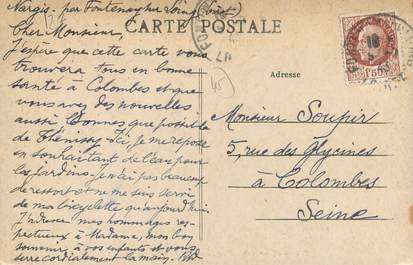 Nargis - par Fontenay sur Loing (Loiret)
CARTE POSTALE
Cher Monsieur,
J'espère que cette carte vous
trouvera tous en bonne
santé à Colombes et que
vous avez des nouvelles
aussi bonnes que possible
de Thénissy. Ici, je me repose
en souhaitant de l'eau pour
les jardins - je n'ai pas beaucoup
de ressort et ne me suis servi
de ma bicyclette qu'aujourd'hui.
J'adresse mes hommages res-
pectueux à Madame, mon bon
souvenir à vos enfants et vous
serre cordialement la main.
Adresse
Monsieur Soupir
5, rue des Glycines
à Colombes
Seine
1F50
45